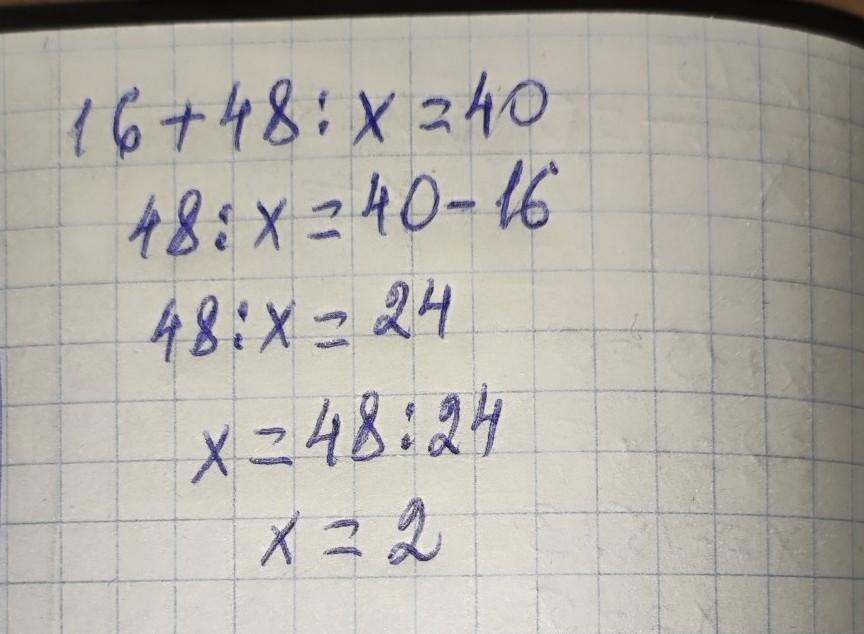 16+48:x=40
48:x=40-16
48:x=24
x=48:24
x=2